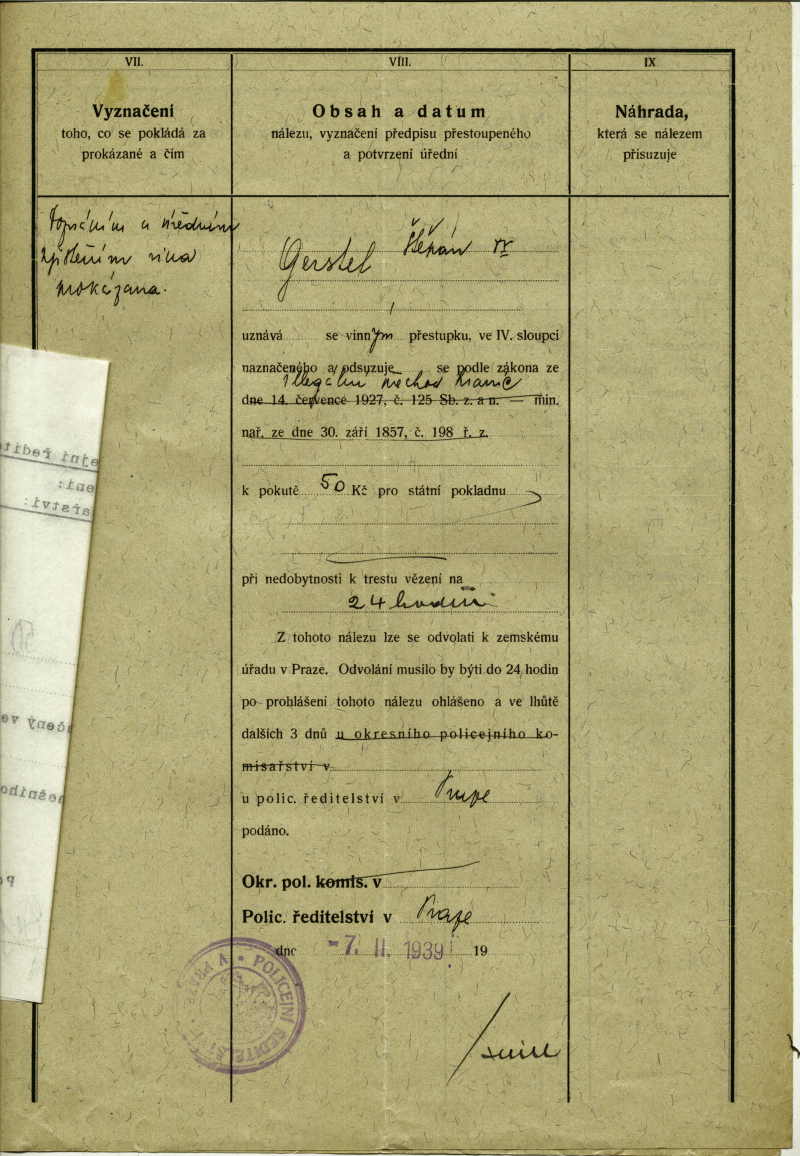 VII.
Vyznačení
toho, co se pokládá za
prokázané a čím
úředním
zjištěním vina
prokázana.
VIII.
Obsah a datum
nálezu, vyznačení předpisu přestoupeného
a potvrzení úřední
Gerstel Štěpán
uznává se vinným přestupku, ve IV. sloupci
naznačeného a odsuzuje se podle zákona ze
illegální přechod hranic
dne 14. července 1927, č. 125 Sb. z. a n. — min.
nař. ze dne 30. září 1857, č. 198 ř. z.
k pokutě 50 Kč pro státní pokladnu
při nedobytnosti k trestu vězení na
24 hodin
Z tohoto nálezu lze se odvolati k zemskému
úřadu v Praze. Odvolání musilo by býti do 24 hodin
po prohlášení tohoto nálezu ohlášeno a ve lhůtě
dalších 3 dnů u okresního policejního ko-
misařství v
u polic. ředitelství v Praze
podáno.
Okr. pol. komis. v
Polic. ředitelství v Praze
dne -7. II. 1939 19
POLICEJNÍ ŘEDITELSTVÍ V PRAZE
IX
Náhrada,
která se nálezem
přisuzuje